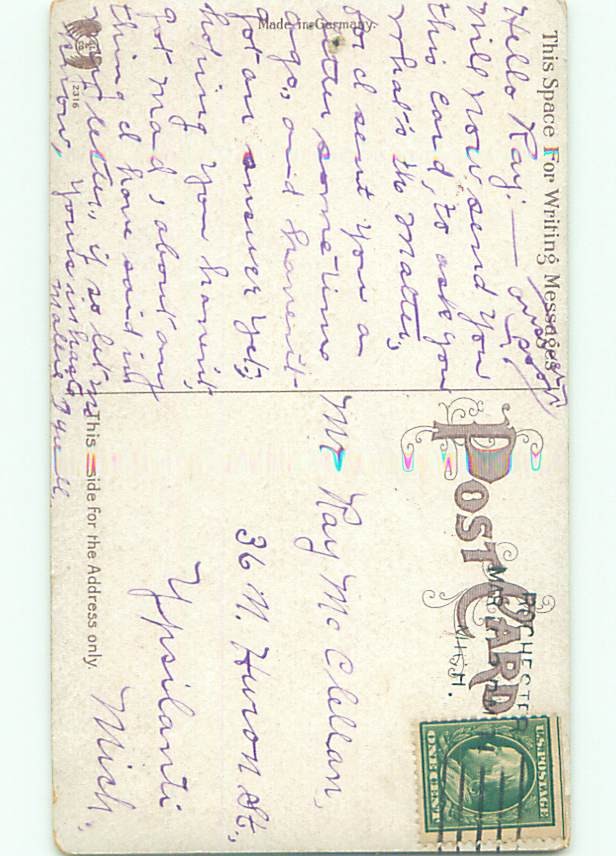 This Space For Writing Messages
Made in Germany.
Hello Ray:—
Will now send you
this card, to ask you
what's the matter,
for I sent you a
letter sometime
ago, and haven't
got an answer yet;
hoping you haven't
got mad about any
thing I have said in
my letter, if so let me
know,
Yours in haste,
2316
POST CARD
ROCHESTER
MICH.
U.S. POSTAGE
ONE CENT
Mr Ray McClellan,
36 N. Huron St.,
Ypsilanti
Mich.
This side for the Address only.